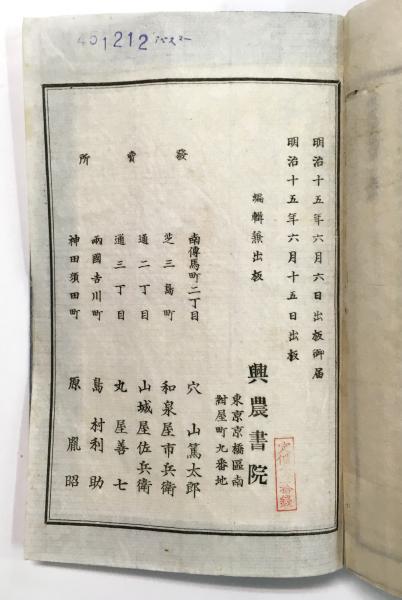 401212
明治十五年六月六日出板御届
明治十五年六月十五日出板
編輯兼出板
東京京橋區南
紺屋町九番地
興農書院
發賣所
南傳馬町二丁目 穴山篤太郎
芝三島町 和泉屋市兵衛
通二丁目 山城屋佐兵衛
通三丁目 丸屋善七
兩國吉川町 島村利助
神田須田町 原胤昭
定價
拾錢